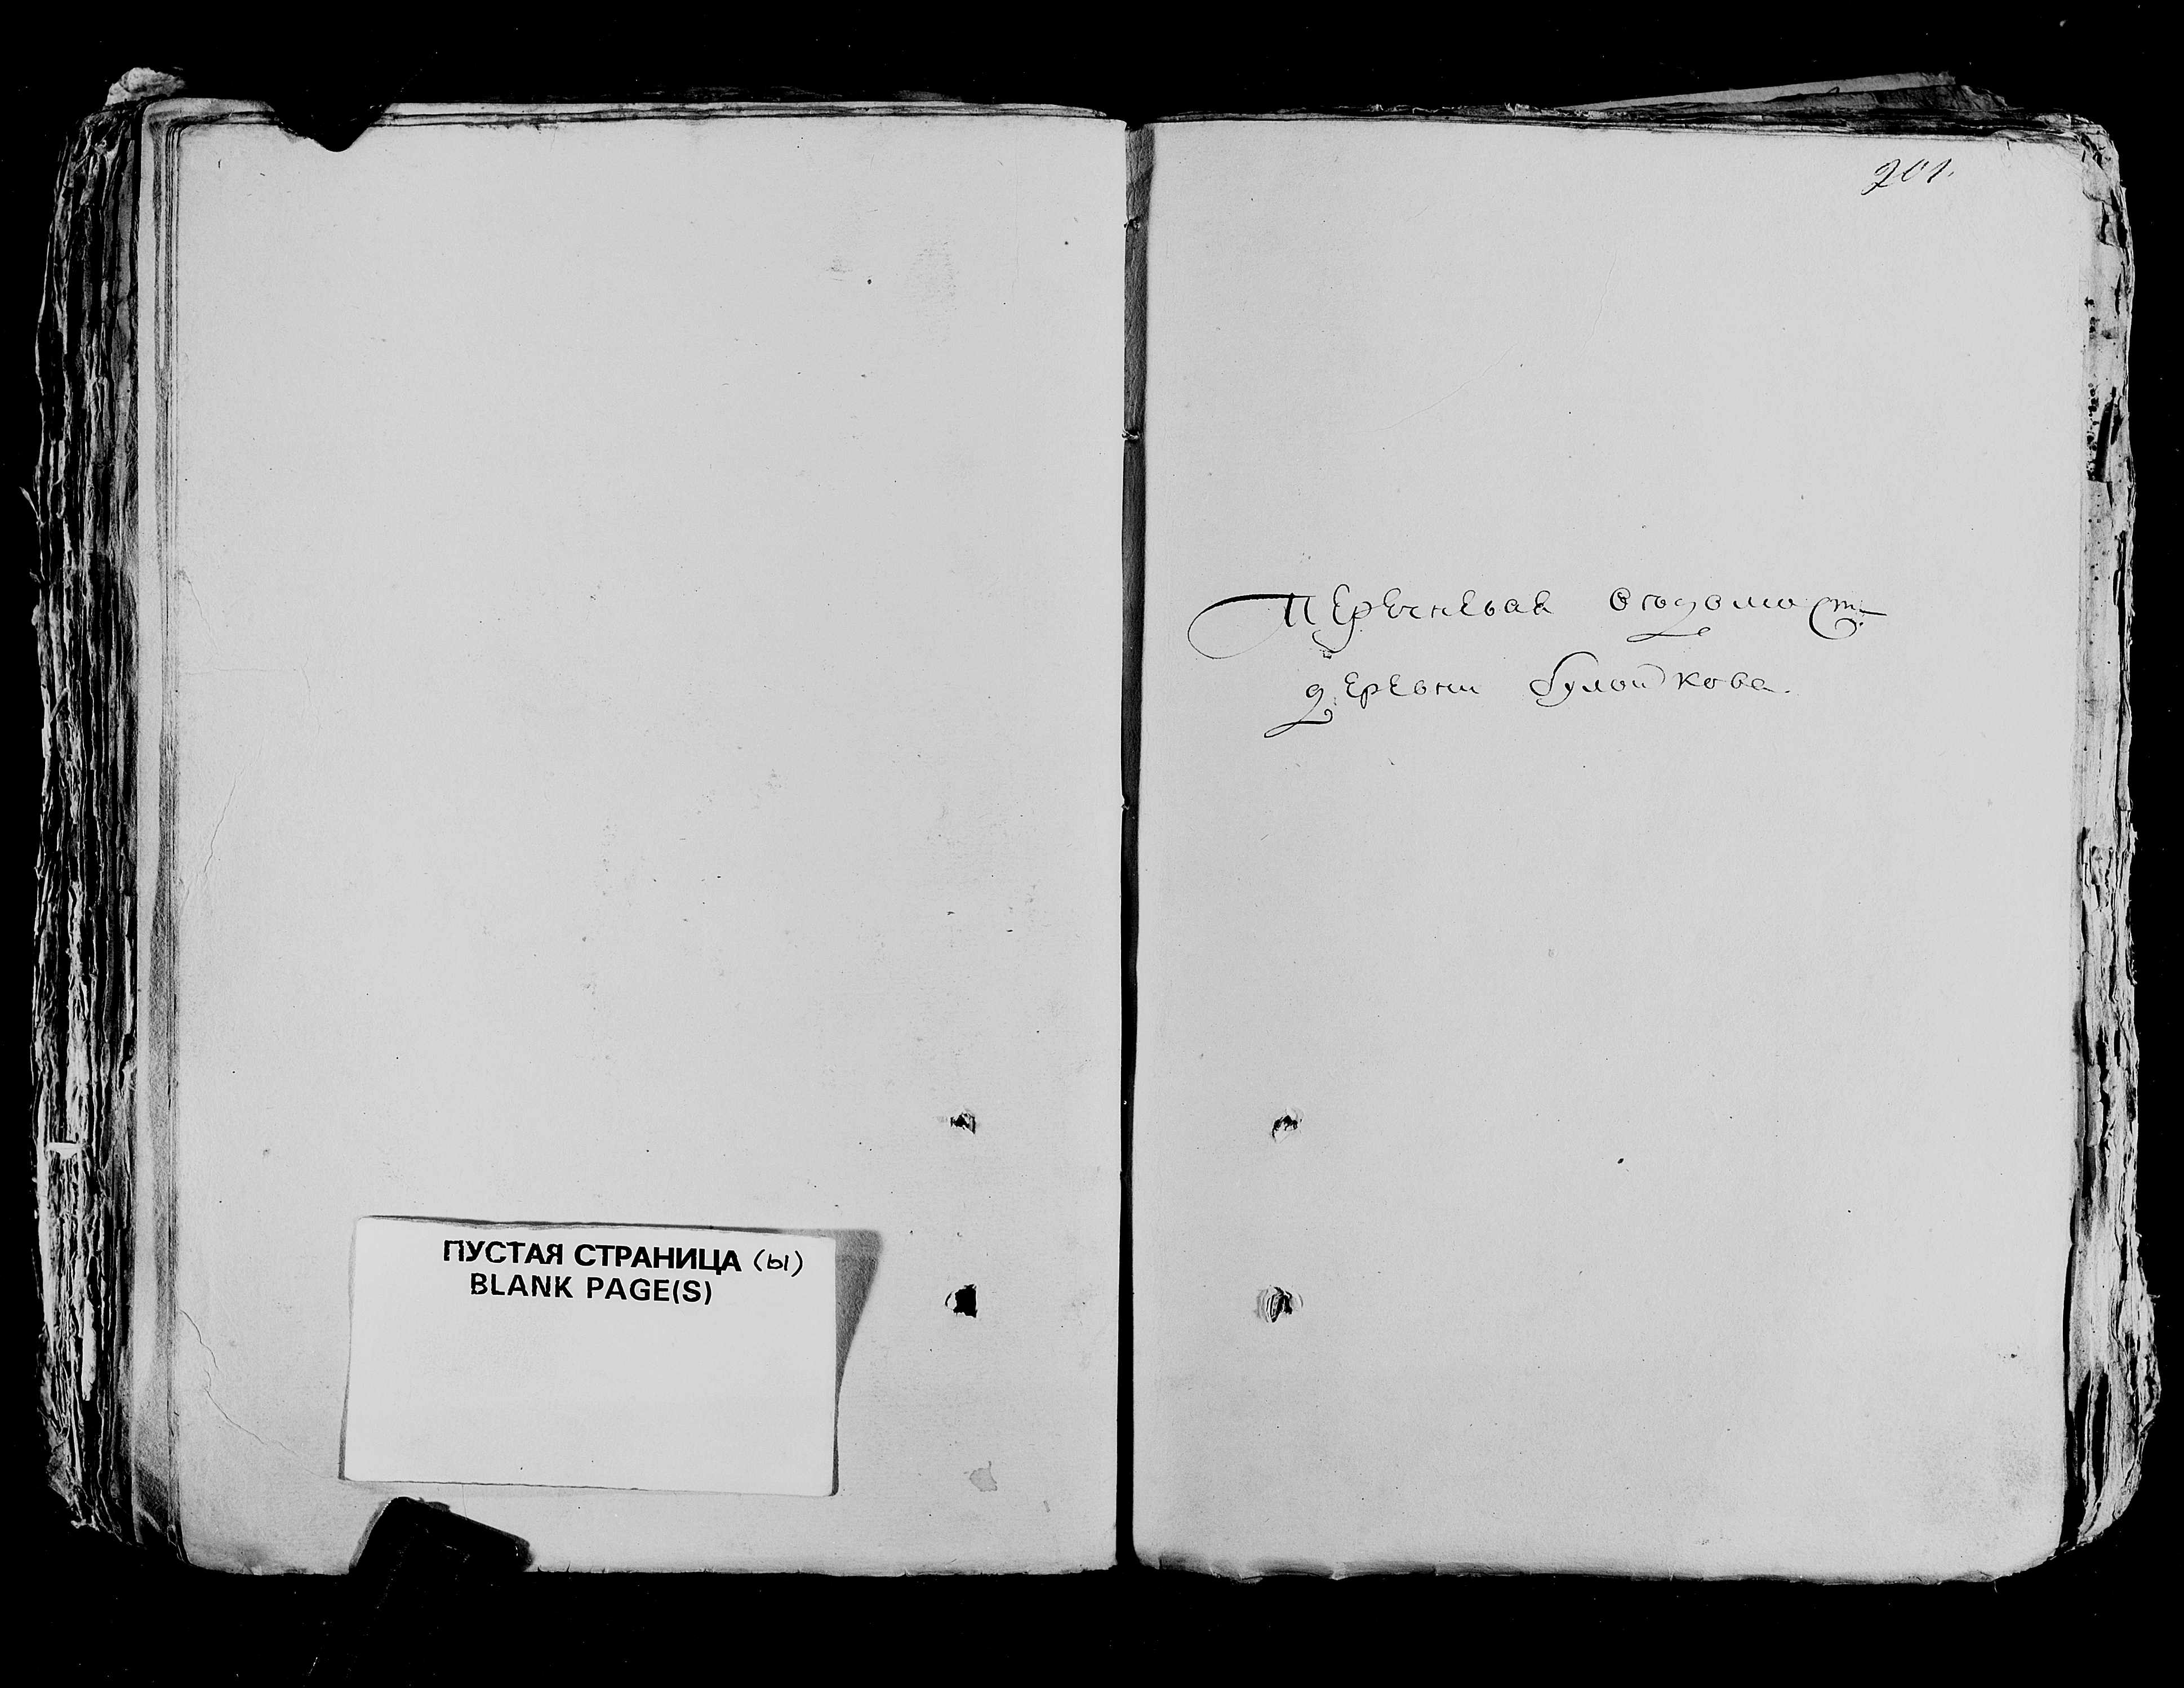 ПУСТАЯ СТРАНИЦА (ы)
BLANK PAGE(S)
201.
Перечневая ведомост
деревни